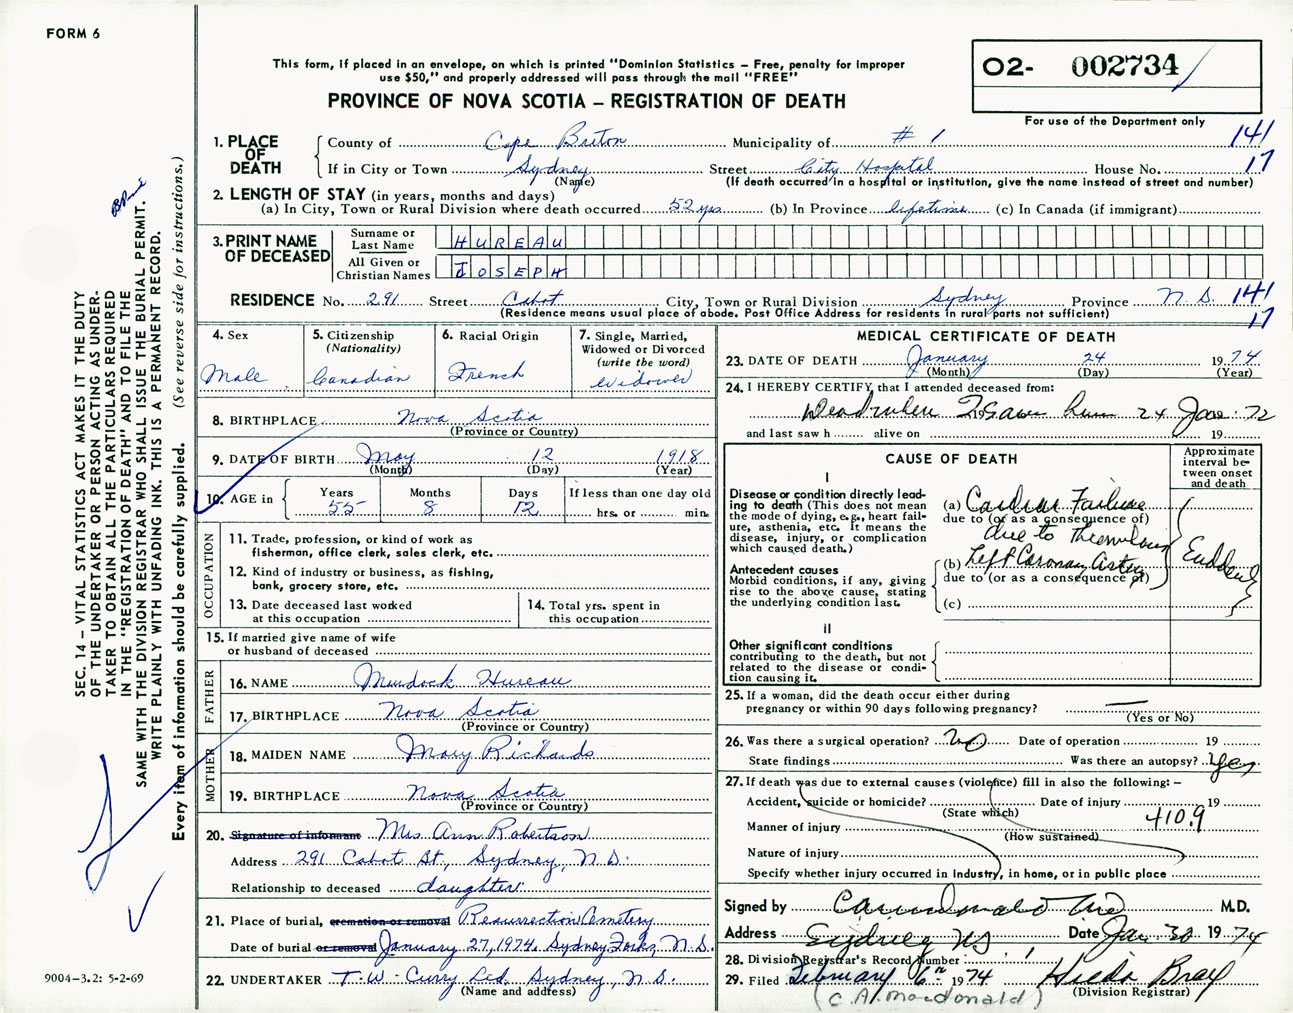 FORM 6
This form, if placed in an envelope, on which is printed "Dominion Statistics – Free, penalty for improper
use $50," and properly addressed will pass through the mail "FREE"
PROVINCE OF NOVA SCOTIA – REGISTRATION OF DEATH
O2- 002734
For use of the Department only
1. PLACE OF DEATH
County of Cape Breton Municipality of # 1 141
If in City or Town Sydney Street City Hospital House No. 17
(Name) (If death occurred in a hospital or institution, give the name instead of street and number)
2. LENGTH OF STAY (in years, months and days)
(a) In City, Town or Rural Division where death occurred 52 yrs (b) In Province lifetime (c) In Canada (if immigrant)
3. PRINT NAME OF DECEASED
Surname or Last Name HUREAU
All Given or Christian Names JOSEPH
RESIDENCE No. 291 Street Cabot City, Town or Rural Division Sydney Province N.S. 141
(Residence means usual place of abode. Post Office Address for residents in rural parts not sufficient) 17
4. Sex
Male
5. Citizenship
(Nationality)
Canadian
6. Racial Origin
French
7. Single, Married,
Widowed or Divorced
(write the word)
widower
8. BIRTHPLACE Nova Scotia
(Province or Country)
9. DATE OF BIRTH May 12 1918
(Month) (Day) (Year)
10. AGE in Years 55 Months 8 Days 12 If less than one day old
hrs. or min.
OCCUPATION
11. Trade, profession, or kind of work as
fisherman, office clerk, sales clerk, etc.
12. Kind of industry or business, as fishing,
bank, grocery store, etc.
13. Date deceased last worked
at this occupation
14. Total yrs. spent in
this occupation
15. If married give name of wife
or husband of deceased
FATHER
16. NAME Murdock Hureau
17. BIRTHPLACE Nova Scotia
(Province or Country)
MOTHER
18. MAIDEN NAME Mary Richards
19. BIRTHPLACE Nova Scotia
(Province or Country)
20. Signature of informant Mrs Ann Robertson
Address 291 Cabot St., Sydney, N.S.
Relationship to deceased daughter
21. Place of burial, cremation or removal Resurrection Cemetery
Date of burial or removal January 27, 1974, Sydney Forks, N.S.
22. UNDERTAKER T.W. Curry Ltd, Sydney, N.S.
(Name and address)
MEDICAL CERTIFICATE OF DEATH
23. DATE OF DEATH January 24 1974
(Month) (Day) (Year)
24. I HEREBY CERTIFY, that I attended deceased from:
Dead when I saw him 24 Jan. 72
and last saw h alive on 19
CAUSE OF DEATH
Approximate
interval be-
tween onset
and death
I
Disease or condition directly lead-
ing to death (This does not mean
the mode of dying, e.g., heart fail-
ure, asthenia, etc. It means the
disease, injury, or complication
which caused death.)
(a) Cardiac Failure
due to (or as a consequence of)
due to
Antecedent causes
Morbid conditions, if any, giving
rise to the above cause, stating
the underlying condition last.
(b) Left Coronary Artery
due to (or as a consequence of)
(c)
Suddenly
II
Other significant conditions
contributing to the death, but not
related to the disease or condi-
tion causing it.
25. If a woman, did the death occur either during
pregnancy or within 90 days following pregnancy? —
(Yes or No)
26. Was there a surgical operation? No Date of operation 19
State findings Was there an autopsy? Yes
27. If death was due to external causes (violence) fill in also the following: –
Accident, suicide or homicide? Date of injury 19
(State which)
410.9
Manner of injury
(How sustained)
Nature of injury
Specify whether injury occurred in industry, in home, or in public place
Signed by M.D.
Address Sydney NS Date Jan. 30 1974
28. Division Registrar's Record Number
29. Filed February 6th 1974 Hilda Bray
(Division Registrar)
(C. A. MacDonald)
SEC. 14 – VITAL STATISTICS ACT MAKES IT THE DUTY
OF THE UNDERTAKER OR PERSON ACTING AS UNDER-
TAKER TO OBTAIN ALL THE PARTICULARS REQUIRED
IN THE "REGISTRATION OF DEATH" AND TO FILE THE
SAME WITH THE DIVISION REGISTRAR WHO SHALL ISSUE THE BURIAL PERMIT.
WRITE PLAINLY WITH UNFADING INK. THIS IS A PERMANENT RECORD.
Every item of information should be carefully supplied. (See reverse side for instructions.)
9004–3.2: 5-2-69